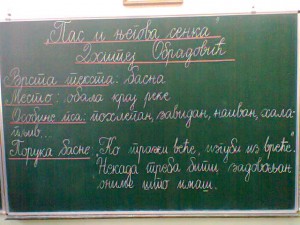 „Пас и његова сенка"
Доситеј Обрадовић
Врста текста: басна
Место: обала крај реке
Особине пса: похлепан, завидан, наиван, хала-
пљив...
Порука басне: "Ко тражи веће, изгуби из вреће."
Некада треба бити задовољан
оним што имаш.